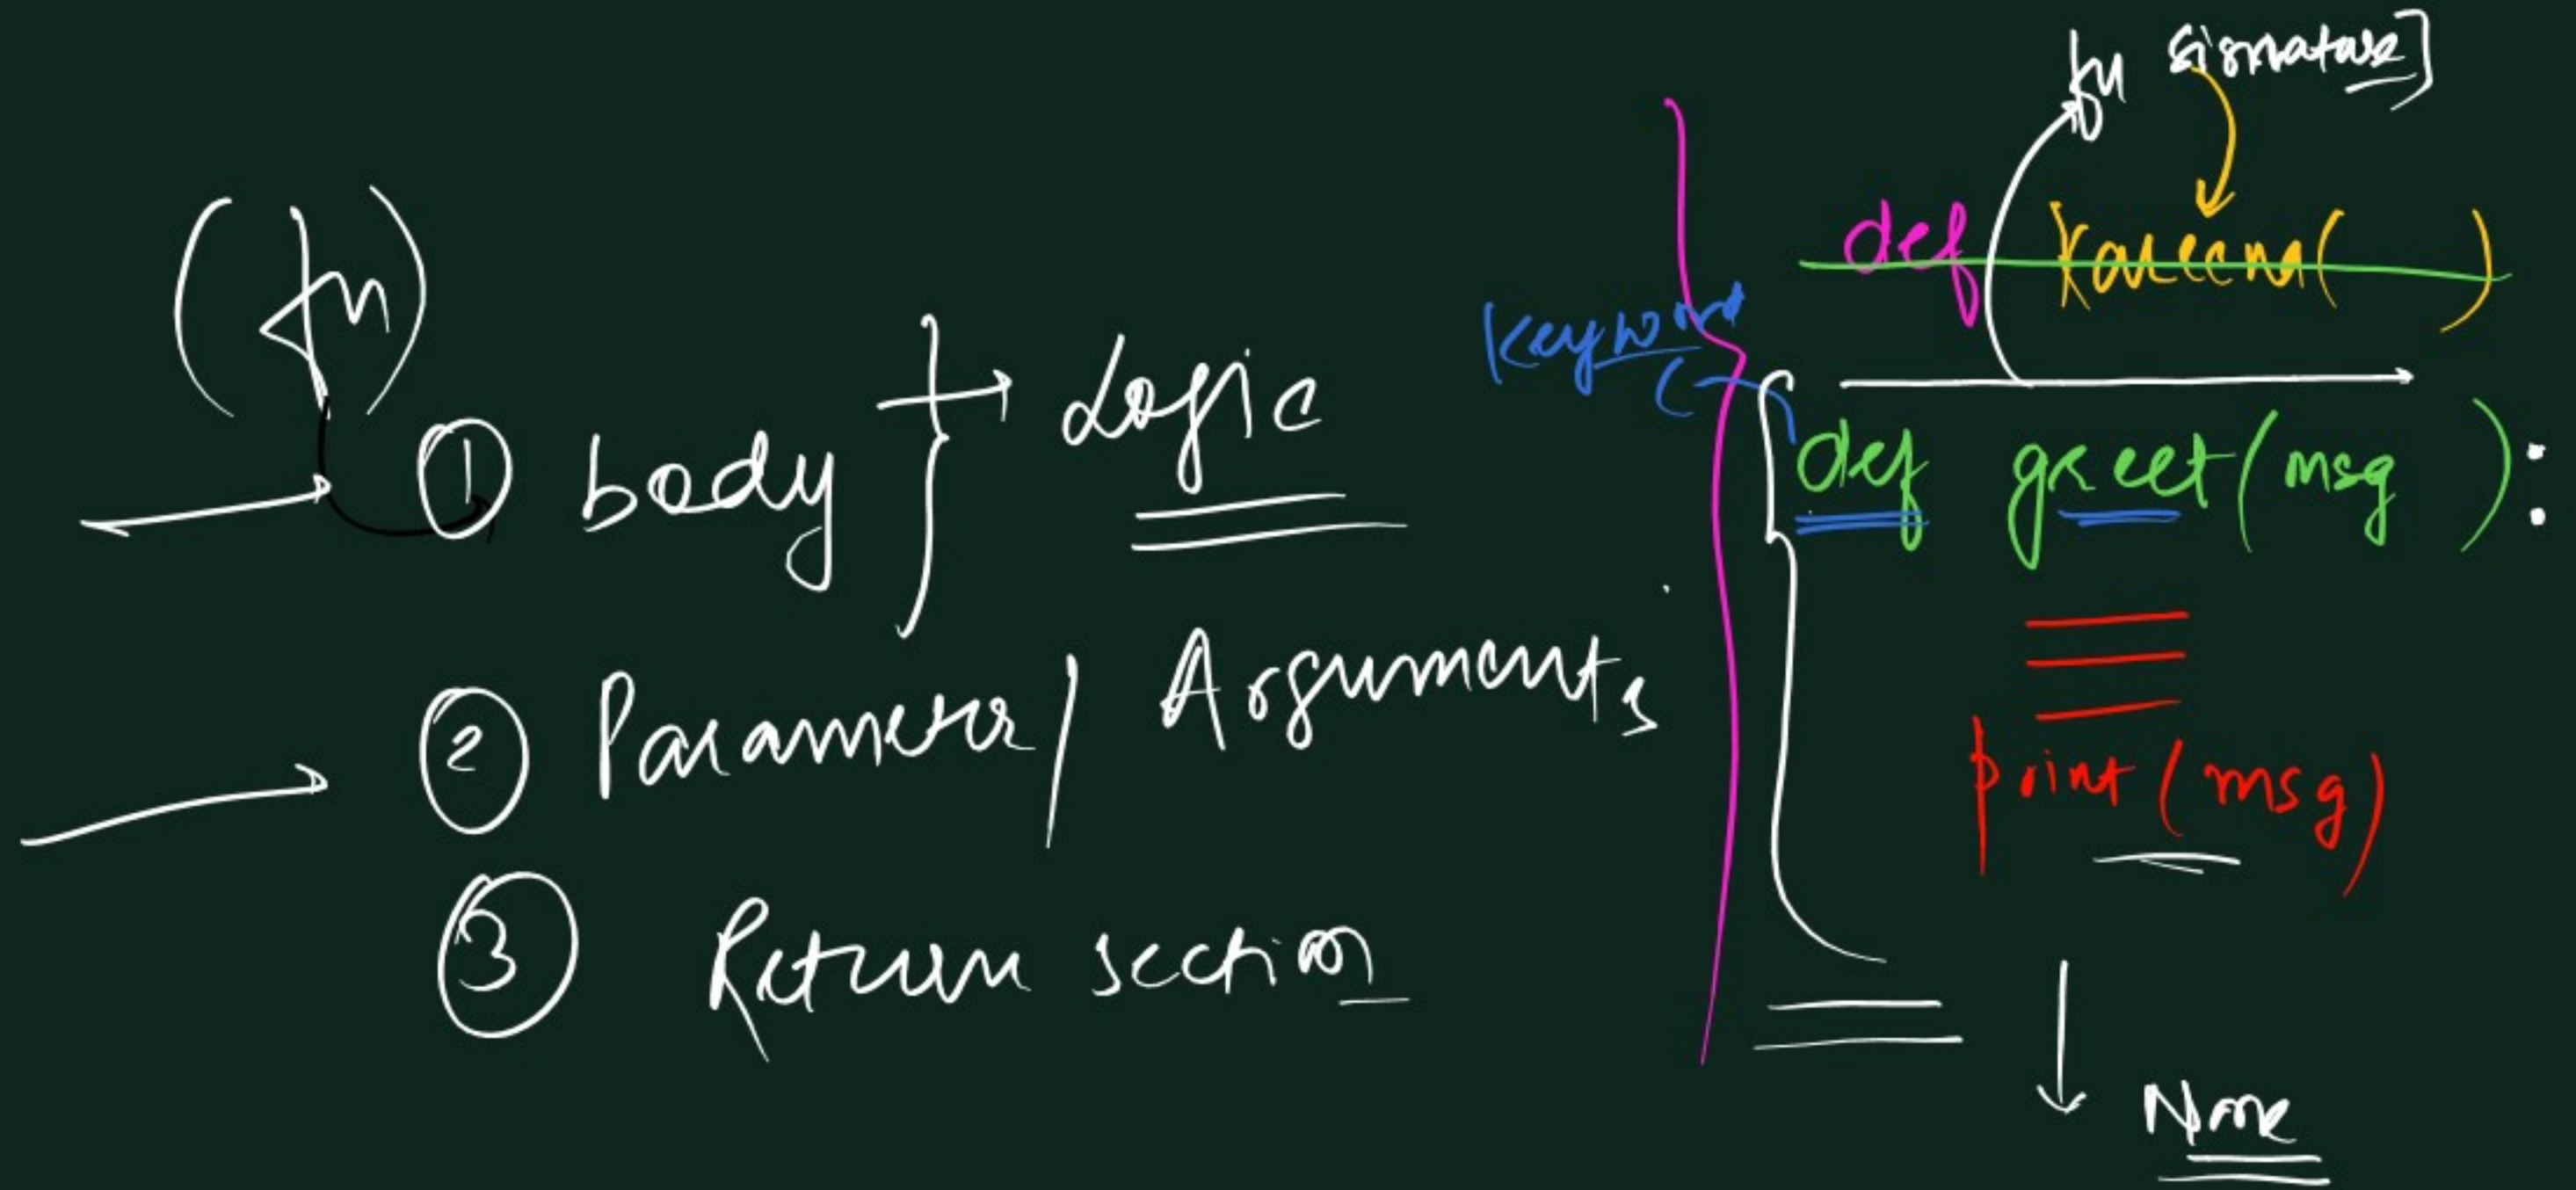 (fn)
① body } → Logic
② Parameter / Arguments
③ Return section
fn signature]
def kareena( )
keyword
def greet(msg ):
print(msg)
None